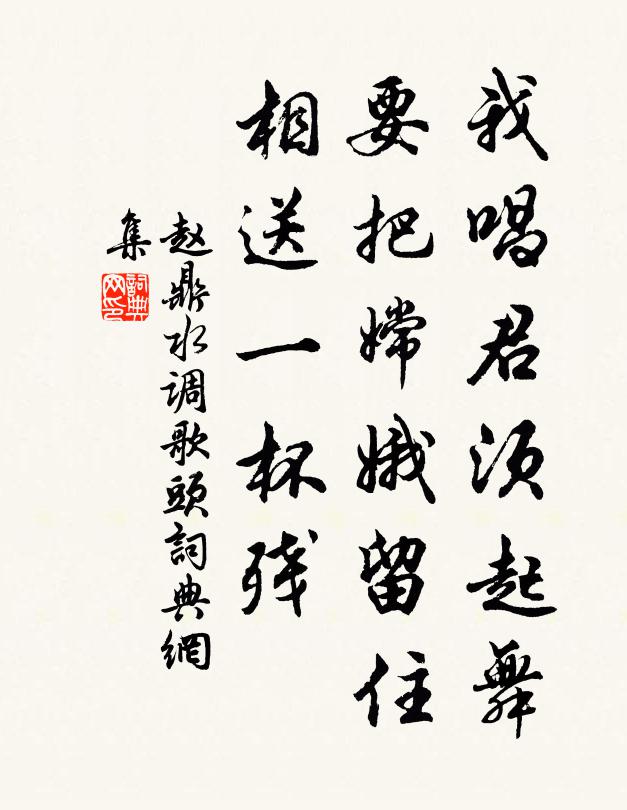 我唱君须起舞
要把嫦娥留住
相送一杯残
赵鼎水调歌頭詞典網
集
詞典
网印